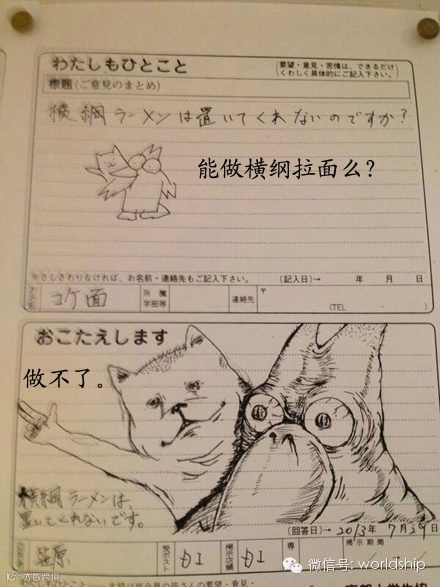 わたしもひとこと
(要望・意見・苦情は、できるだけ
くわしく具体的にご記入下さい。)
標題(ご意見のまとめ)
横綱ラーメンは置いてくれないのですか?
能做横纲拉面么?
※さしさわりなければ、お名前・連絡先もご記入下さい。 (記入日)→ 年 月 日
コケ面
所属
学部等
連絡先
〒
(TEL )
おこたえします
做不了。
横綱ラーメンは
置いてくれないです。
(回答日)→2013年7月39日
掲示期間
掲示店舗
微信号: worldship
大数跨境